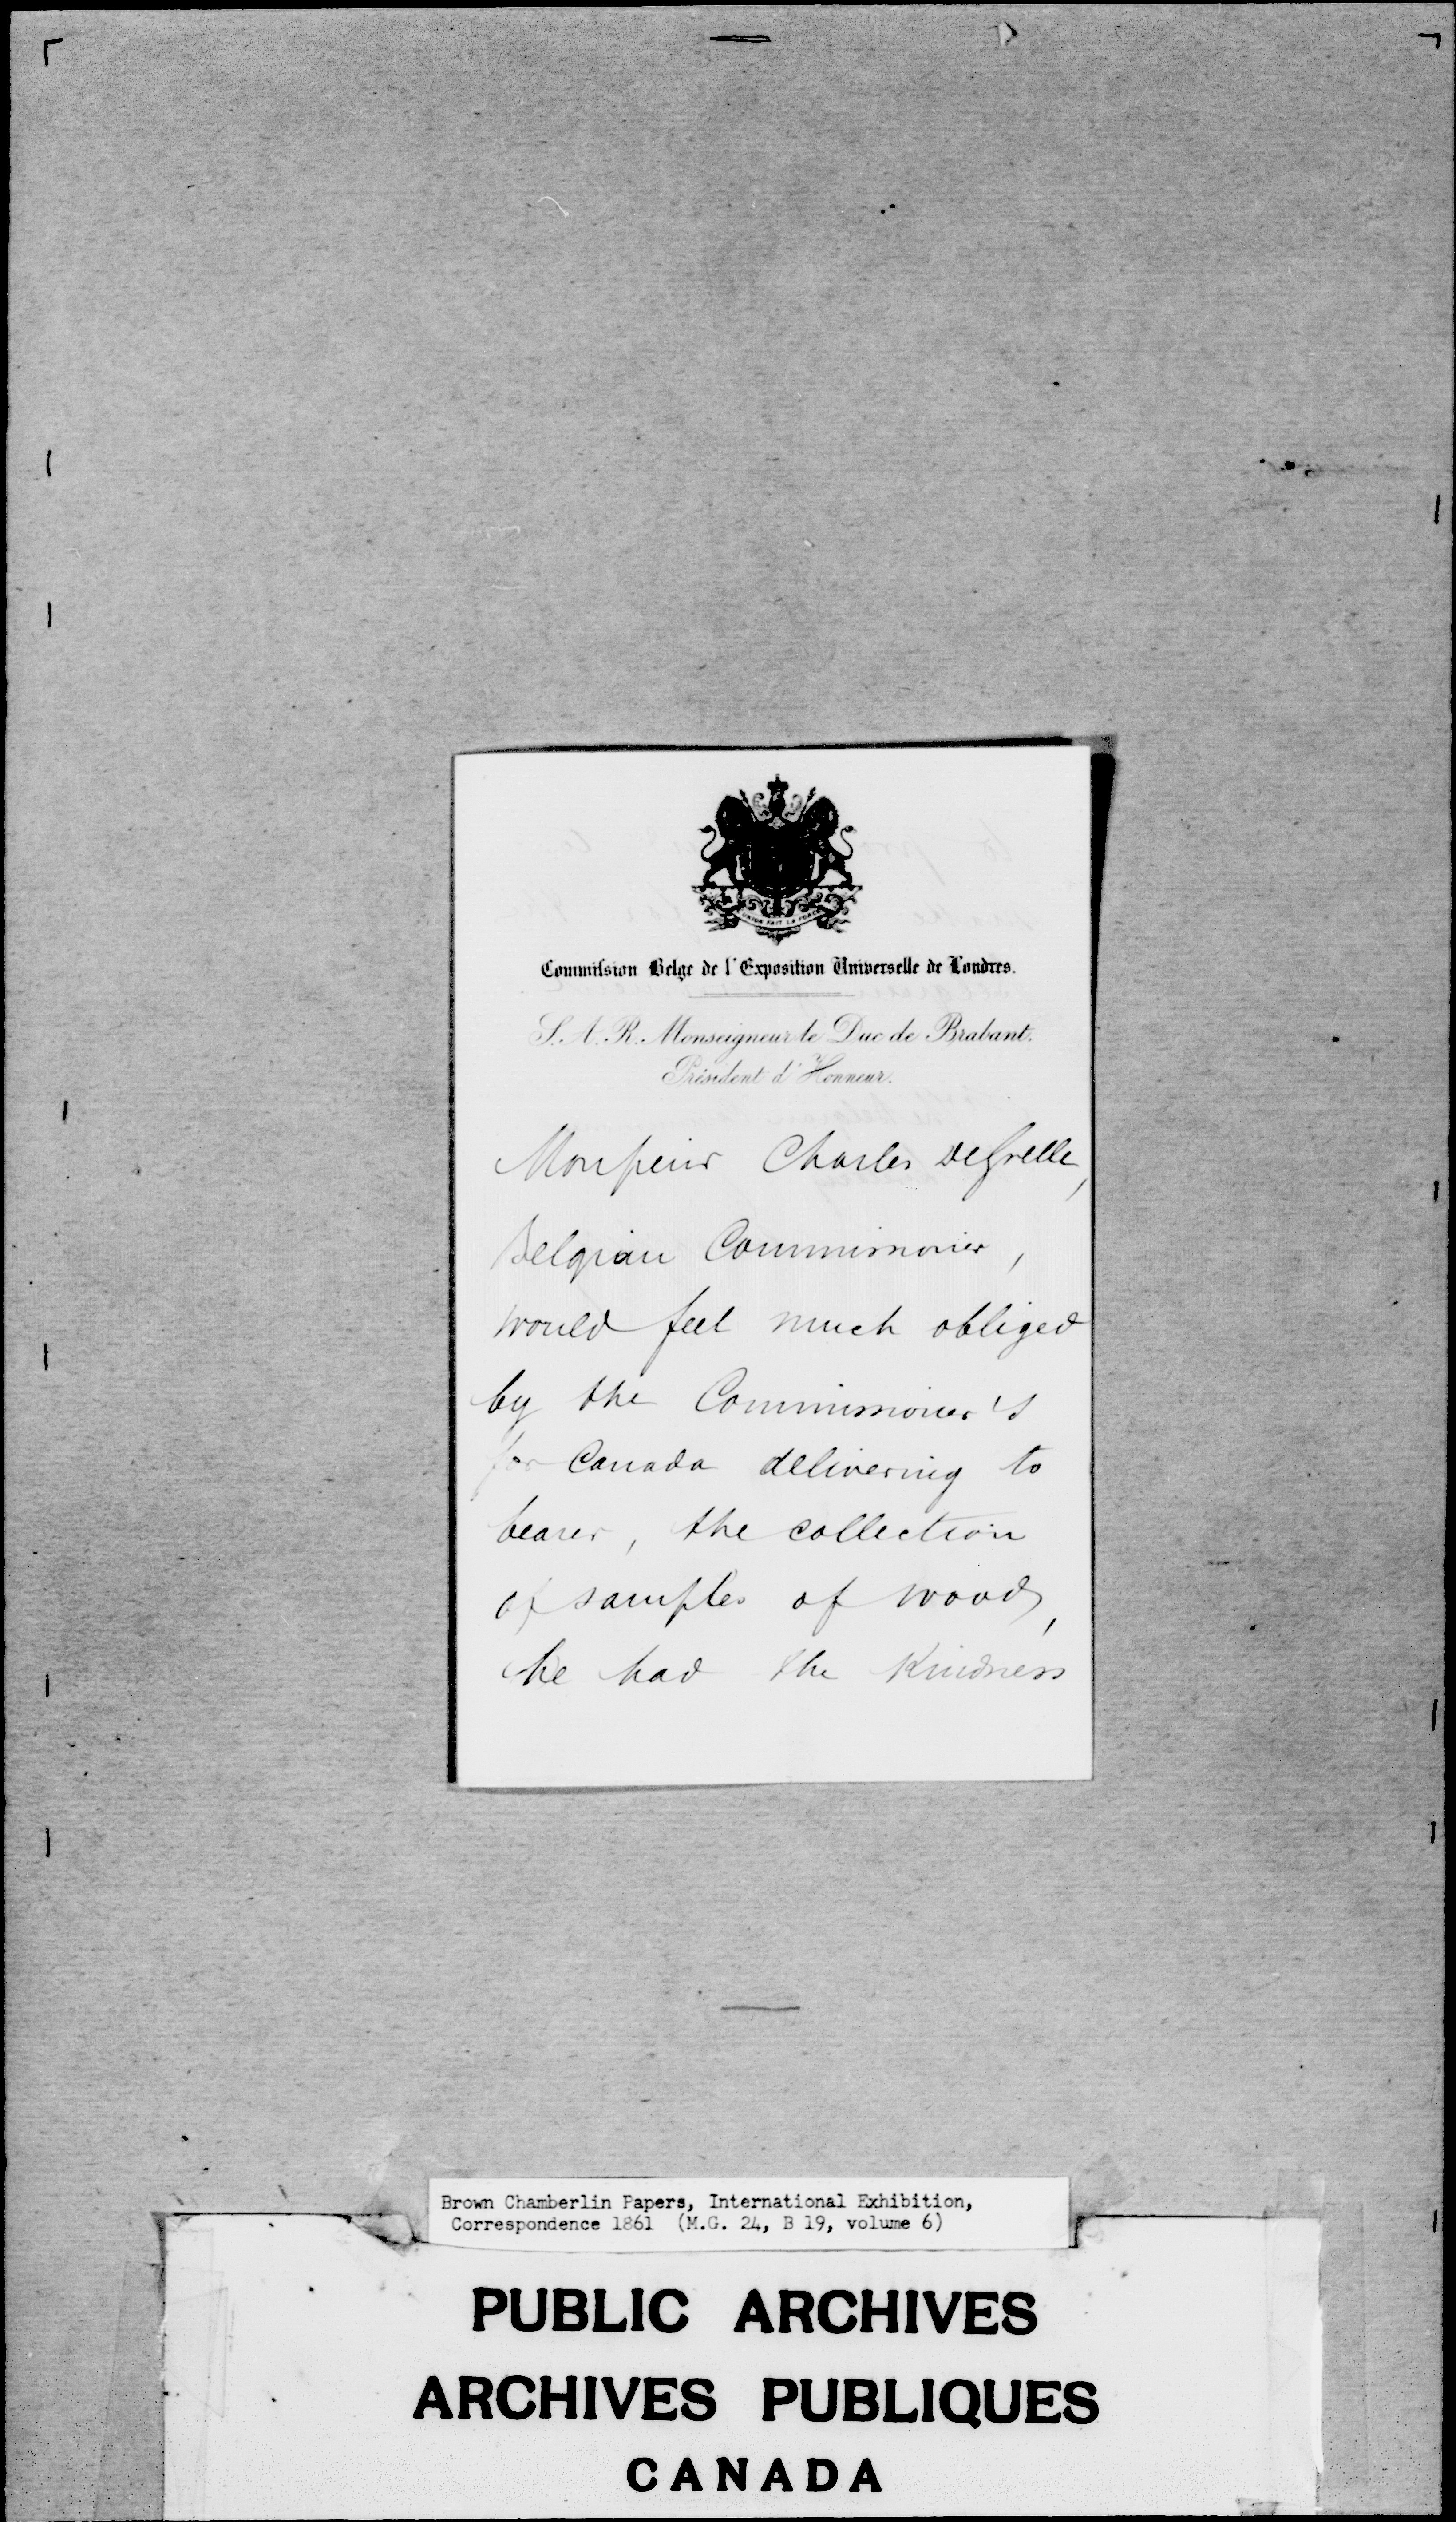 UNION FAIT LA FORCE
Commission Belge de l'Exposition Universelle de Londres.
S. A. R. Monseigneur le Duc de Brabant.
Président d'Honneur.
Monsieur Charles DeGrelle,
Belgian Commissioner,
would feel much obliged
by the Commissioner's
for Canada delivering to
bearer, the collection
of samples of wood,
he had the Kindness
Brown Chamberlin Papers, International Exhibition,
Correspondence 1861 (M.G. 24, B 19, volume 6)
PUBLIC ARCHIVES
ARCHIVES PUBLIQUES
CANADA